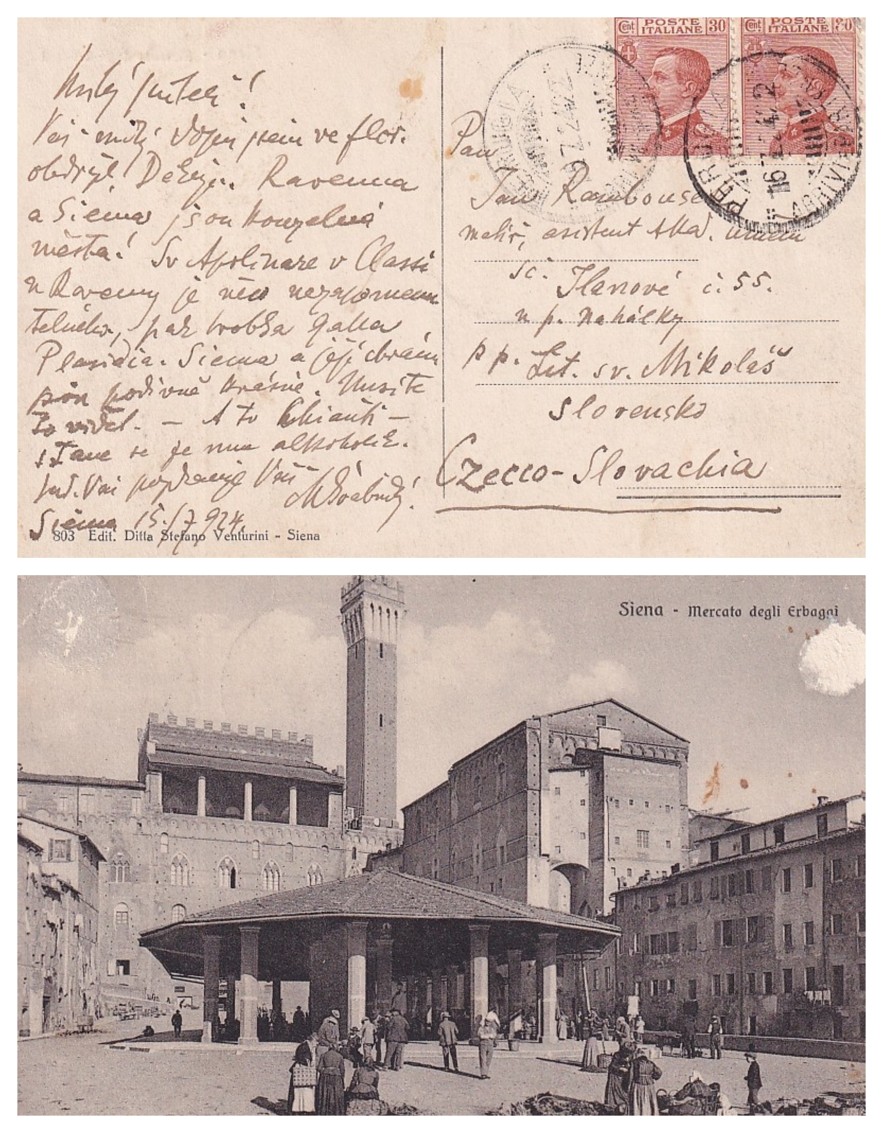 Milý příteli!
Váš milý dopis jsem ve Flor.
obdržel Děkuji. Ravenna
a Siena jsou kouzelná
města! Sv Apolinare v Classi
u Ravenny je něco nezapomenu
telného, pak hrobka Galla
Placidia. Siena a její chrám
podivně krásné. Musíte
to vidět. - A to Chianti -
stane se ze mne alkoholik.
Srd. Vás pozdravuje Váš
Siena 15./7 924.
803 Edit. Ditta Stefano Venturini - Siena
Cent POSTE ITALIANE 30
Cent POSTE ITALIANE 30
PERUGIA
PERUGIA
Pan
Jan Rambousek
malíř, asistent Akad. umění
Ilanové č. 55.
u p. Mahálky
pp. Lit. sv. Mikoláš
Slovensko
Czecco-Slovachia
Siena - Mercato degli Erbaggi